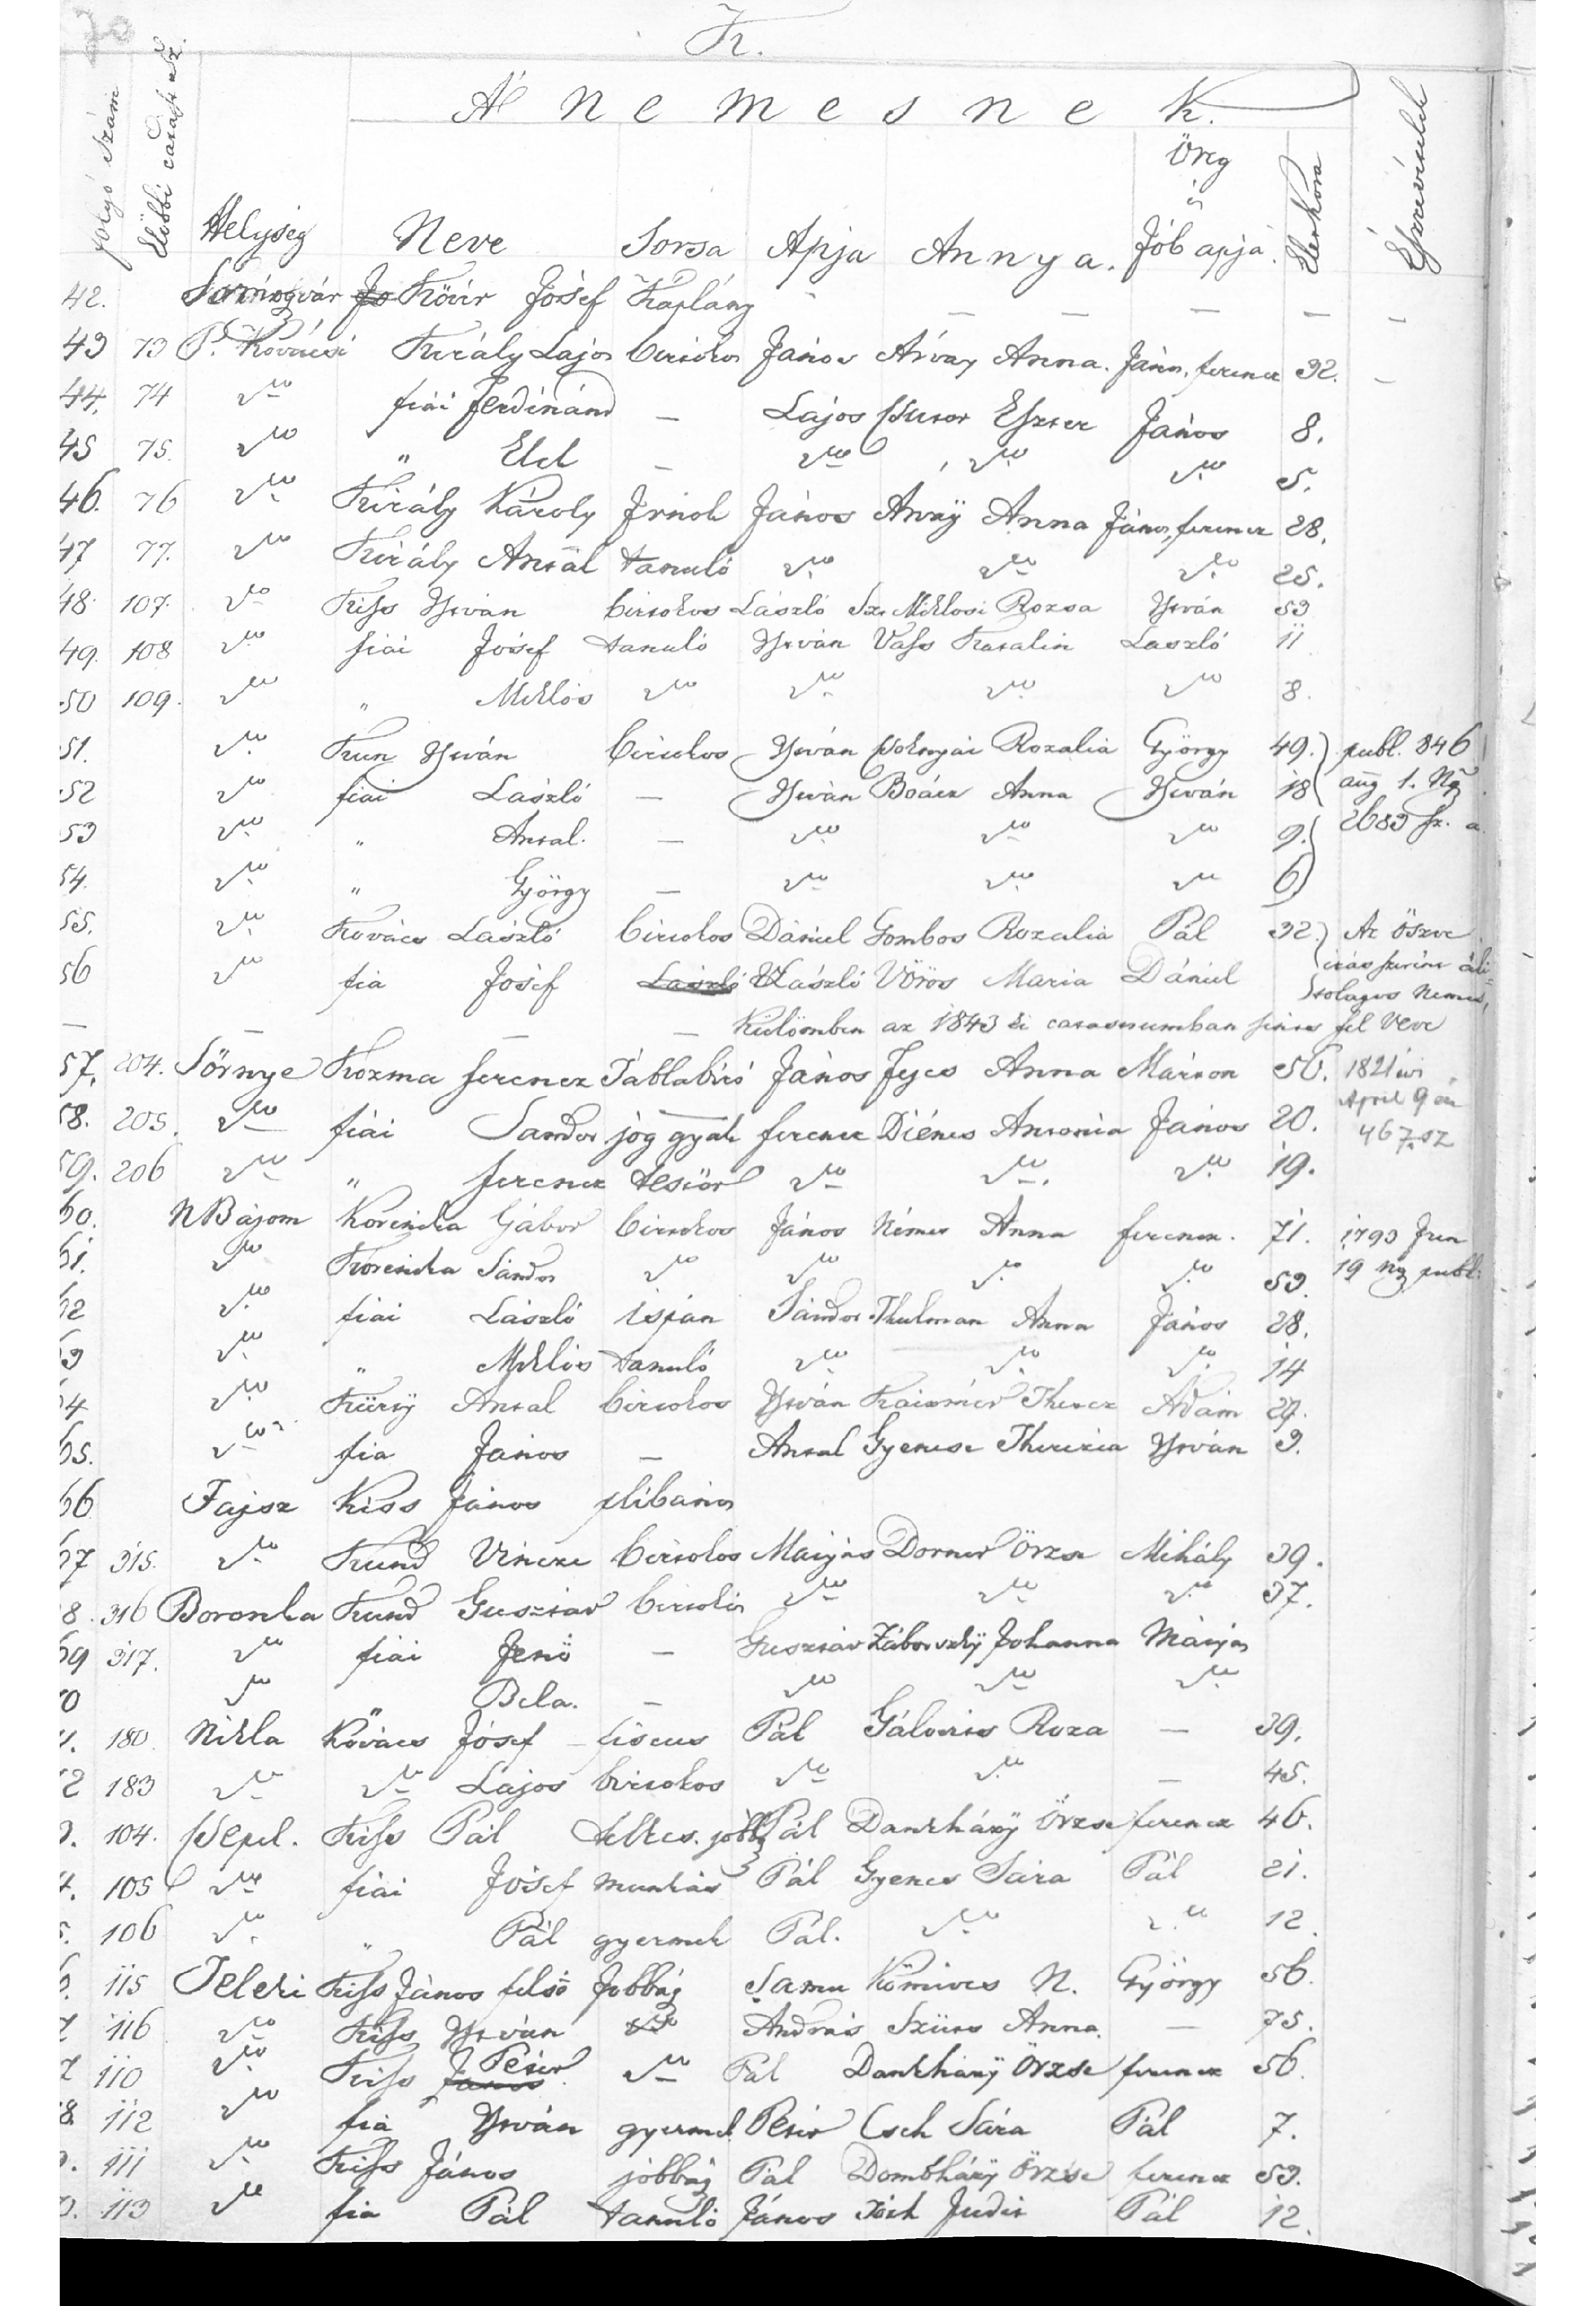 K.
A' nemesnek.
folyó szám Elébbi Helység Neve Sorsa Apja Annya. Öreg s Jób apja. Életkora Észrevételek
42. Somogyvár Kövér Jósef Káplány — — — — —
43 73 P. Kovácsi Király Lajos birtokos János Árvay Anna. János, ferencz 32. —
44. 74 do fiái ferdinánd — Lajos Eszter János 8.
45 75. do " Elek — do do do 5.
46. 76 do Király Károly Irnok János Arvaÿ Anna János, ferencz 28.
47 77. do Király Antal tanuló do do do 25.
48. 107. do Kiss István birtokos László Sz. Miklosi Rozsa István 53
49. 108 do fiái Jósef tanuló István Vass Katalin László 11
50 109. do " Miklós do do do do 8.
51. do Kun István birtokos István Rozalia György 49. publ. 846
52 do fiai László — István Boácz Anna István 18 aug 1. Ng
53 do " Antal. — do do do 9. 2683 sz. a.
54. do " György — do do do 6
55. do Kovács László birtokos Dániel Gombos Rozalia Pál 32. Az öszve
56 do fia Jósef László Vörös Maria Dániel irás szerint áli
tolagos nemes,
— — — — Külömben az 1843 ki catasrumban sincs fel véve
57. 204. Sörnye Kozma ferencz Táblabiró János fejes Anna Márton 50. 1821 évi
58. 205. do fiái Sandor jog gyak ferencz Diénes Antonia János 20. April 9 én
467. sz
59. 206 do " ferencz testőr do do do 19.
60. N Bájom Korenika Gábor birtokos János Német Anna ferencz. 71. 1793 Jun
61. do Korenika Sándor do do do do 53. 19 Ng publ.
62 do fiai László ispán Sándor Thulman Anna János 28.
63 do " Miklós tanuló do do do 14
64 do Kürtÿ Antal birtokos István Therez Adám 27.
65. do fia János — Antal Gyenese Therezia István 3.
66 Fajsz Kiss János plibános
67 315. do Kund Vincze birtokos Mátyás Dorner Örzse Mihály 39.
68. 316 Boronka Kund Gusztáv birtokos do do do 37.
69 317. do fiái Jenö — Gusztáv Záborszkÿ Johanna Mátyás
70 do " Bela. — do do do
71. 180. Nikla Kovács Jósef fiscus Pál Gálovits Roza — 39.
72 183 do do Lajos birtokos do do — 45.
3. 104. Vepel. Kiss Pál telkes. jobbg Pál Dankházÿ Örzse ferencz 46.
4. 105 do fiai Jósef munkás Pál Gyenes Sára Pál 21.
5. 106 do " Pál gyermek Pál. do do 12.
6. 115 Teleki Kiss János felsö Jobbág Samu Kömives N. György 56.
7 116 do Kiss István do András Szücs Anna. — 75.
7 110 do Kiss Péter do Pál Dankházÿ Örzse ferencz 56.
8. 112 do fia István gyermek Péter Cseh Sára Pál 7.
9. 111 do Kiss János jobbág Pál Dombházÿ Örzse ferencz 53.
0. 113 do fia Pál tanuló János Tóth Judit Pál 12.